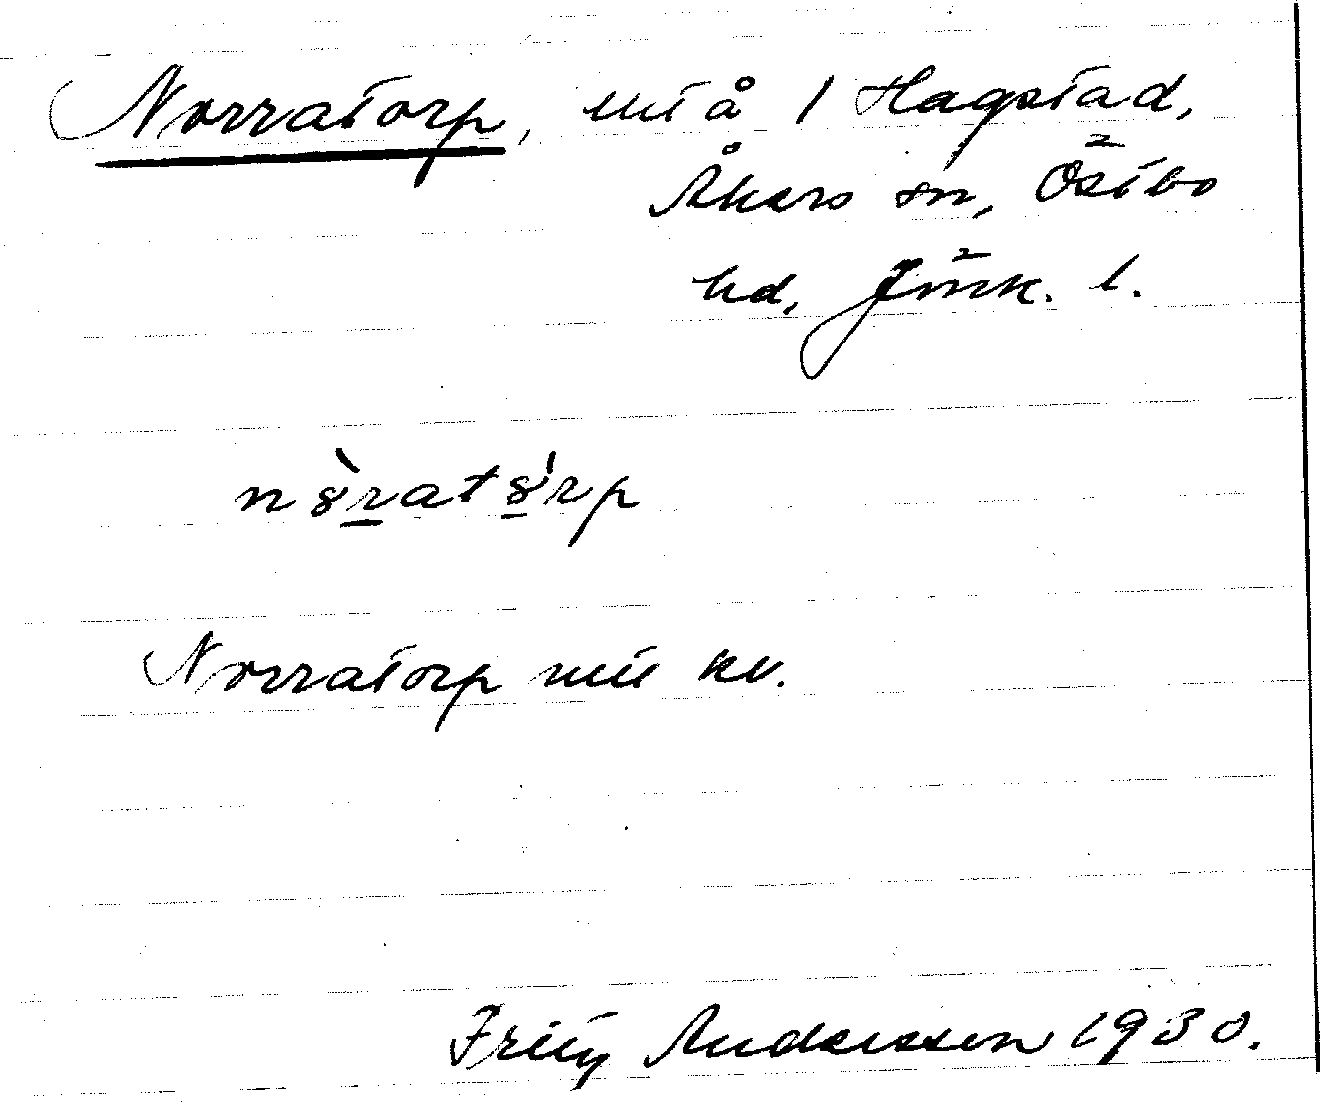 Norratorp, utå 1 Hagstad,
Åkers sn, Östbo
hd, Jönk. l.
n8̀ratśrp
Norratorp mtl kv.
Fritz Andersson 1930.